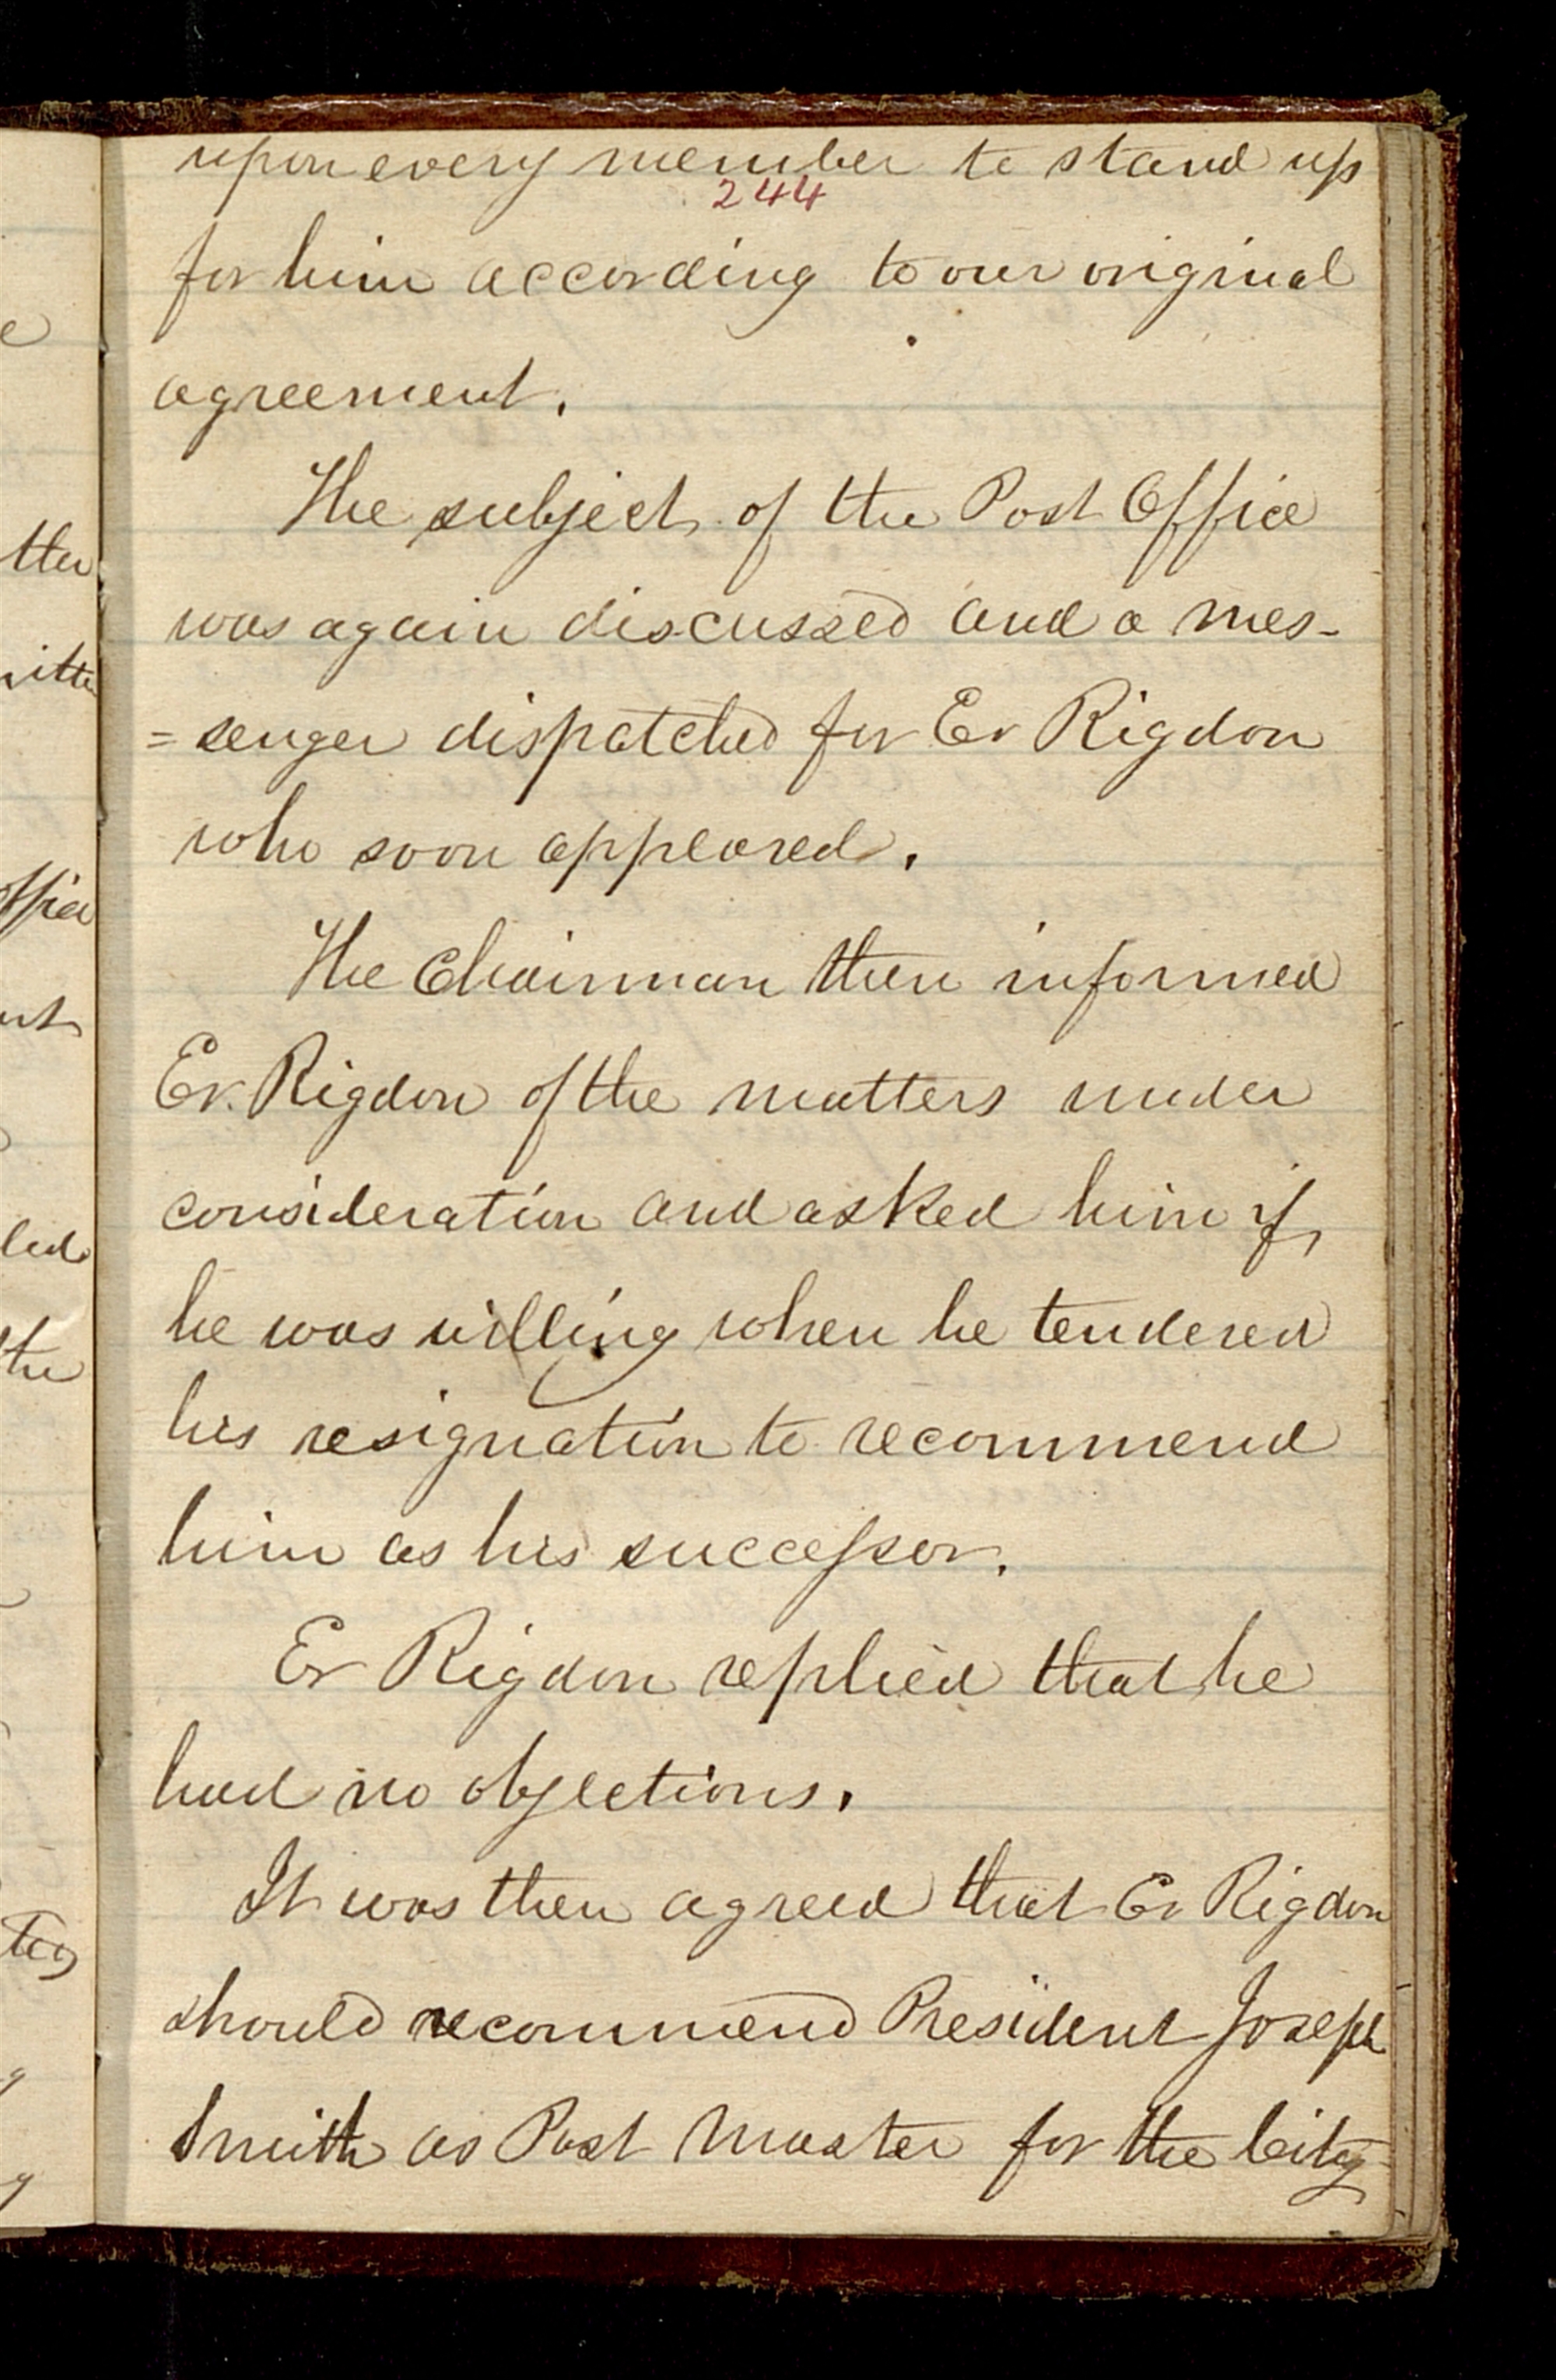 upon every member to stand up
244
for him according to our original
agreement.
The subject of the Post Office
was again discussed and a mes-
=senger dispatched for Er Rigdon
who soon appeared.
The Chairman then informed
Er. Rigdon of the matters under
consideration and asked him if
he was willing when he tendered
his resignation to recommend
him as his successor.
Er Rigdon replied that he
had no objections.
It was then agreed that Er Rigdon
should recommend President Joseph
Smith as Post Master for the City